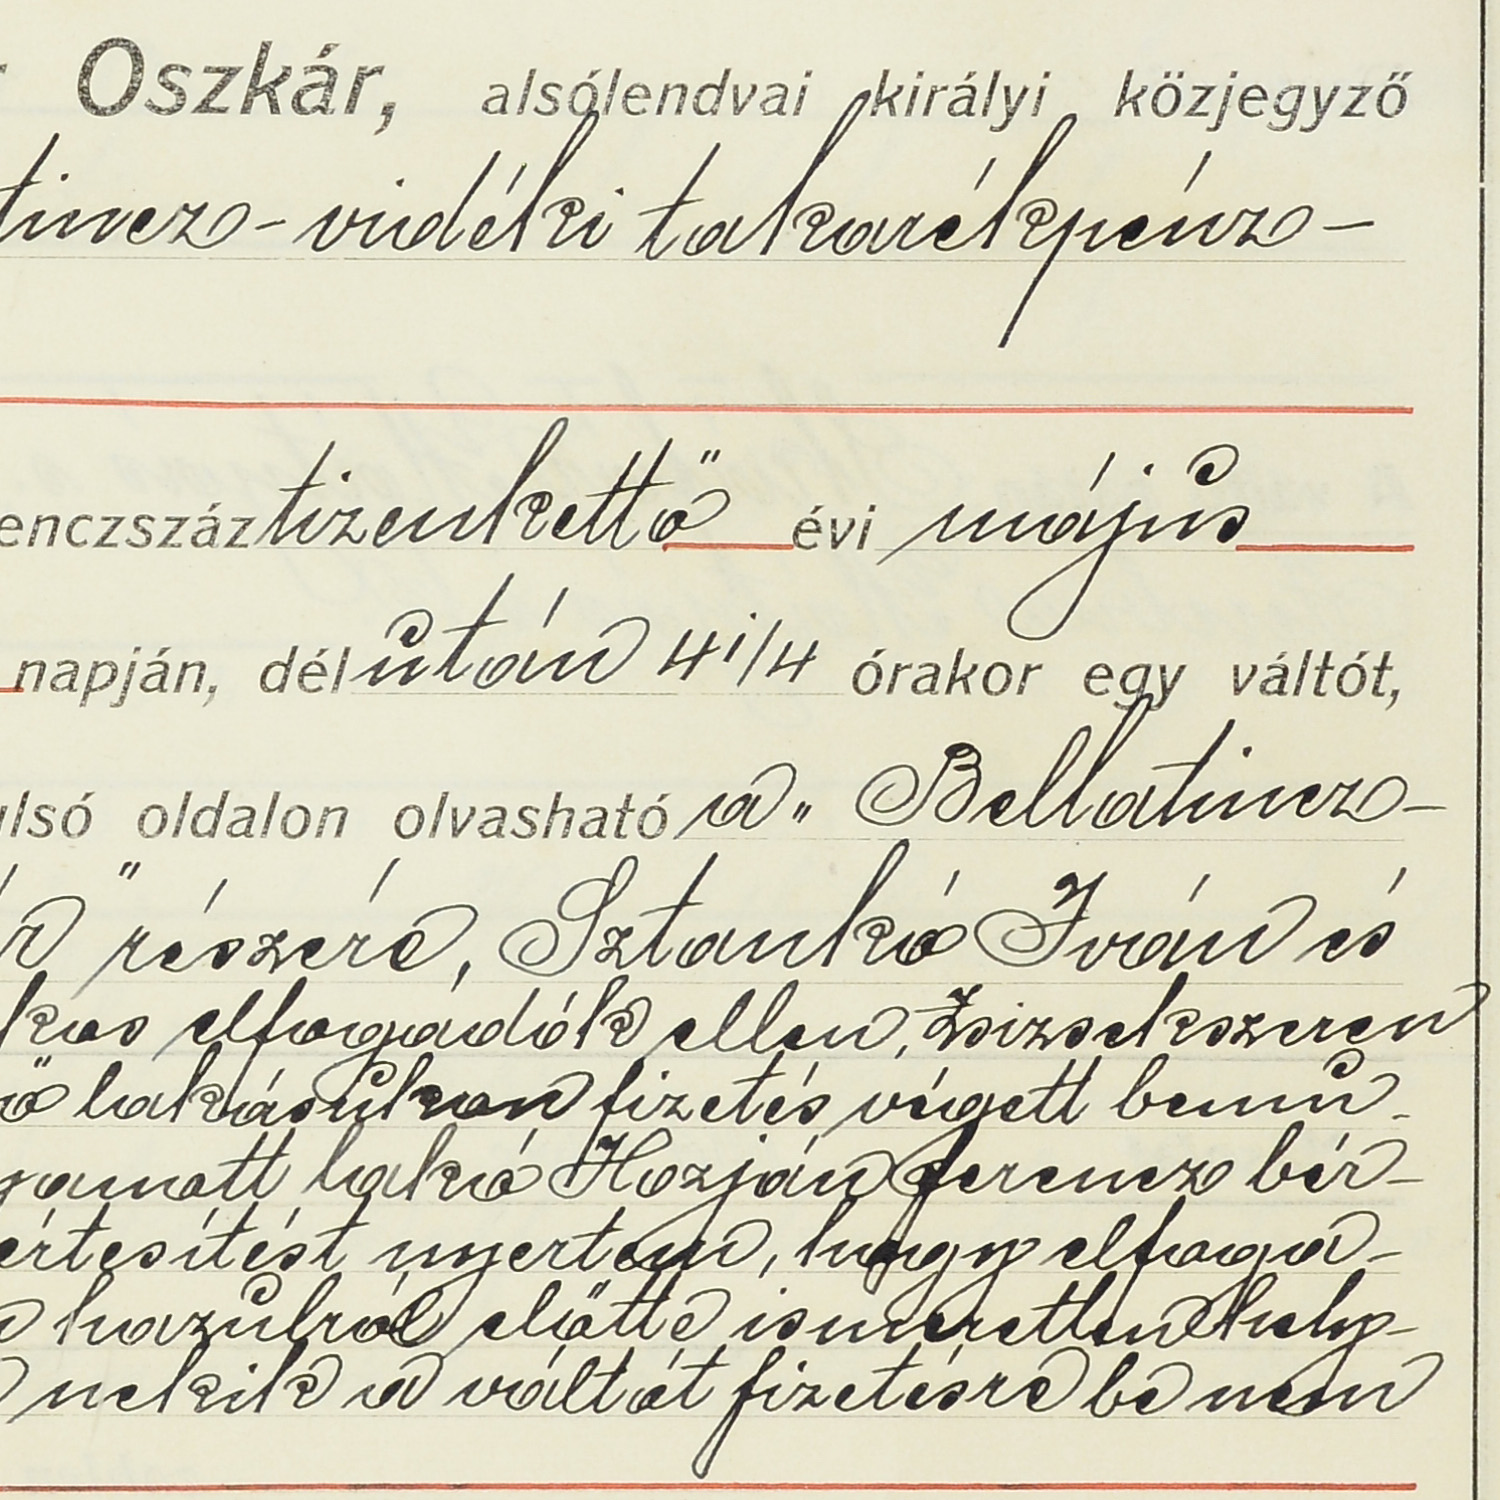 Oszkár, alsólendvai királyi közjegyző
tincz-vidéki takarékpénz-
enczszáz tizenkettő évi május
napján, délután 4 1/4 órakor egy váltót,
ulsó oldalon olvasható a „Bellatincz-
r" részére, Sztankó Iván és
kos elfogadók ellen, Zsizsekszeren
ő lakásukon fizetés végett bemu-
gyanott lakó Hozján Ferencz bér-
értesítést nyertem, hogy elfoga-
hazulról előtte ismeretlen hely-
nekik a váltót fizetésre be nem